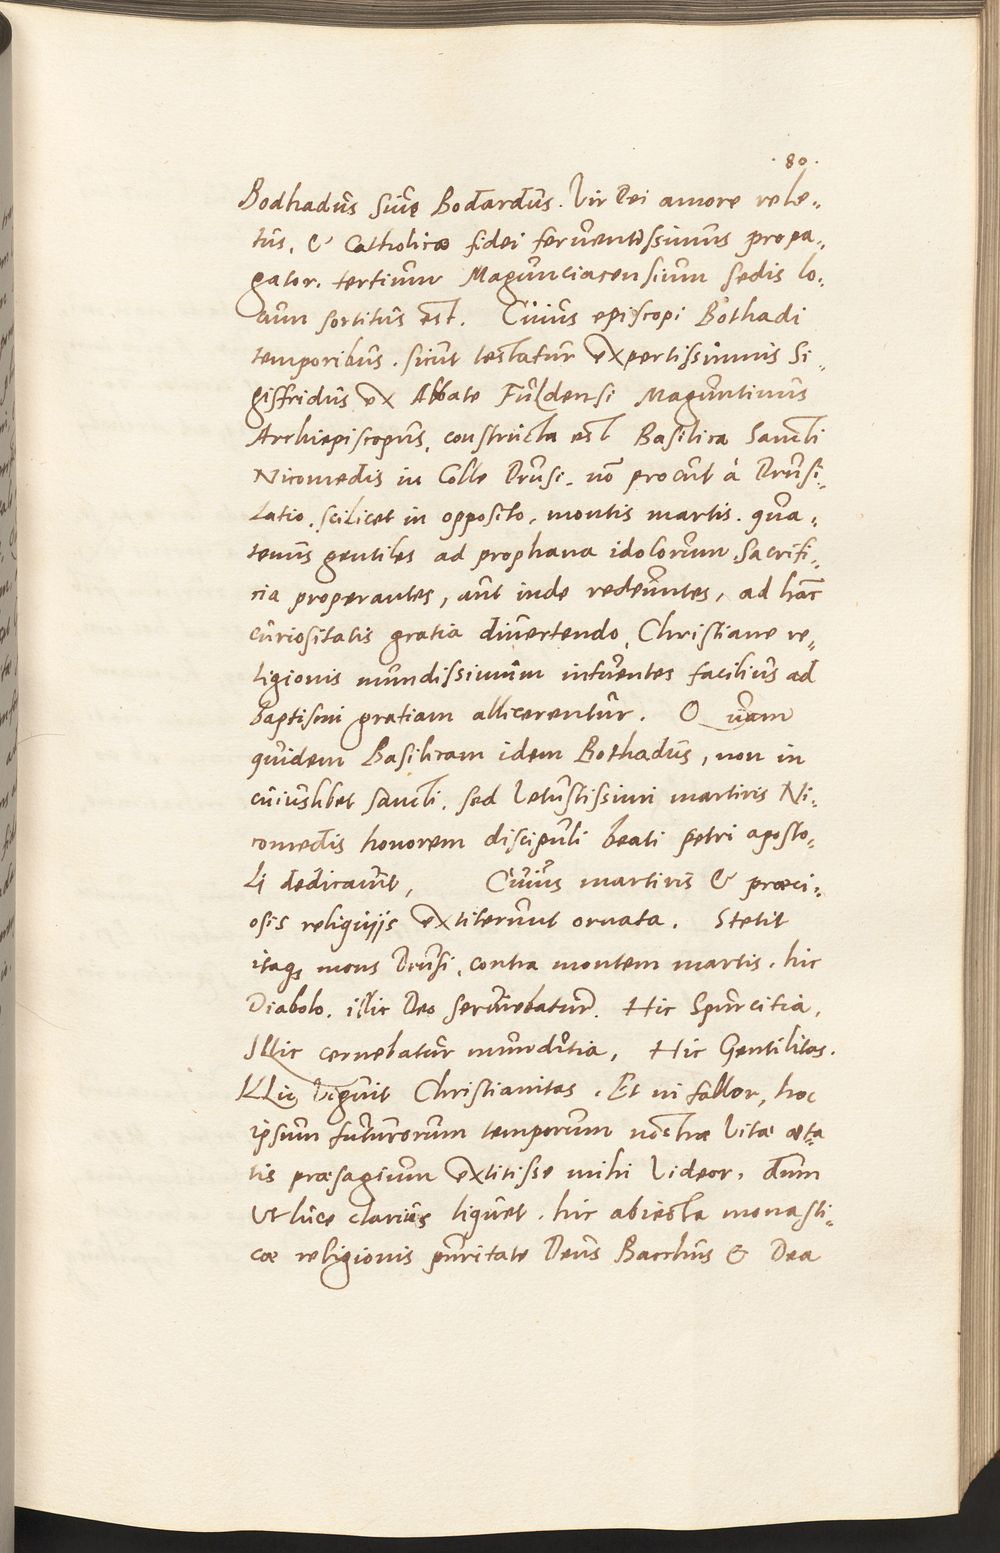 . 80 .
Bodhadus siue Bodardus. Vir Dei amore rele=
tus, & Catholicæ fidei feruentissimus propa=
gator. tertium Magunciacensium sedis lo=
cum sortitus est. Cuius episcopi Bothadi
temporibus. sicut testatur expertissimus Si=
gisfridus ex Abbate Fuldensi Maguntinus
Archiepiscopus, constructa est Basilica Sancti
Nicomedis in Colle Drusi. nō procul à Drusi=
latio. scilicet in opposito, montis martis. qua=
tenus gentiles ad prophana idolorum sacrifi=
cia properantes, aut inde redeuntes, ad hāc
curiositatis gratia diuertendo, Christiane re=
ligionis mundissimum intuentes facilius ad
baptismi gratiam allicerentur. Quam
quidem Basilicam idem Bothadus, non in
cuiuslibet sancti, sed Vetustissimi martiris Ni=
comedis honorem discipuli beati petri aposto=
li dedicauit, Cuius martiris & præci=
osis religuijs extiterunt ornata. Stetit
itaqꝫ mons Drusi, contra montem martis. hic
Diabolo. illic Deo seruiebatur. Hic Spurcitia,
Illic cernebatur munditia, Hic Gentilitas.
Illic Viguit Christianitas. Et ni fallor, hoc
ipsum futurorum temporum nostræ Vitæ æta
tis præsagium extitisse mihi Videor, dum
Ut luce clarius liquet. hic abiecta monasti=
cæ religionis puritate Deus Bacchus & Dea